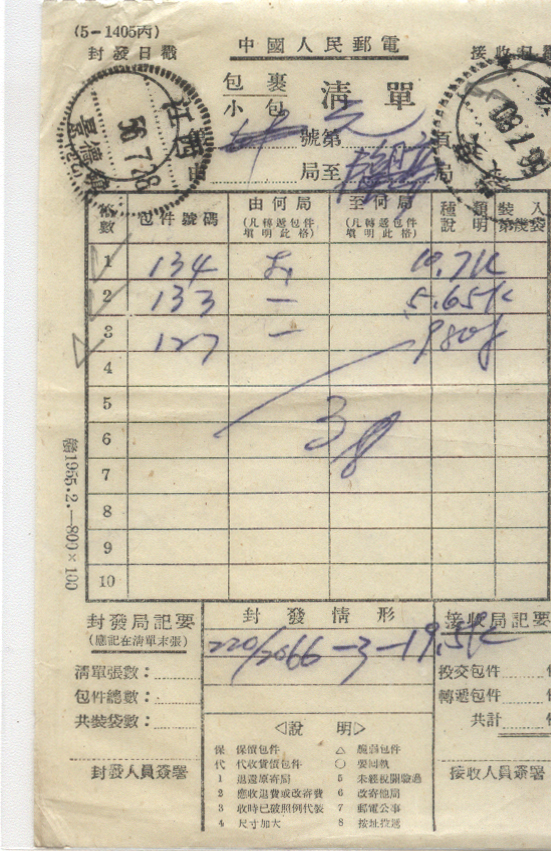 (5-1405丙)
封發日戳
中國人民郵電
接收日戳
包裹
小包
清單
號第 號
局至 局
格數 包件號碼 由何局 至何局 種類說明 裝入第幾袋
(凡轉遞包件填明此格) (凡轉遞包件填明此格)
1 134 10.7K
2 133 — 5.65K
3 127 — 980g
4
5
6
7
8
9
10
贛1955.2.—800×100
封發局記要
(應記在清單末張)
封發情形
接收局記要
220/2066-3-19.5K
清單張數:
包件總數:
共裝袋數:
投交包件 件
轉遞包件 件
共計 件
封發人員簽署
接收人員簽署
◁說 明▷
保 保價包件
代 代收貨價包件
1 退還原寄局
2 應收退費或改寄費
3 收時已破照例代裝
4 尺寸加大
△ 脆弱包件
○ 要回執
5 未經視關驗過
6 改寄他局
7 郵電公事
8 按址投遞
江西
景德鎮
56.7.28